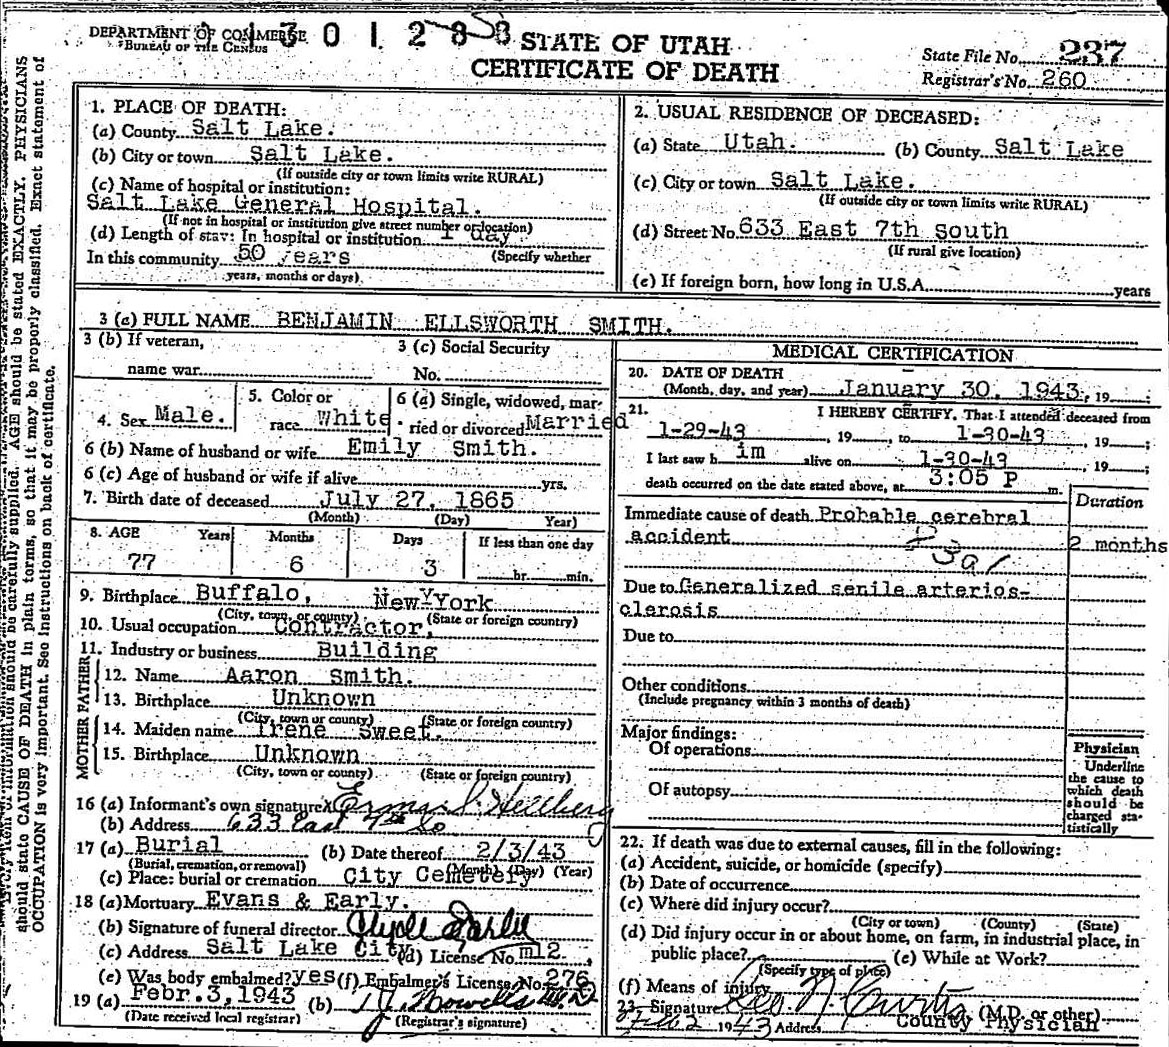 DEPARTMENT OF COMMERCE
BUREAU OF THE CENSUS
STATE OF UTAH
CERTIFICATE OF DEATH
State File No. 237
Registrar's No. 260
1. PLACE OF DEATH:
(a) County Salt Lake.
(b) City or town Salt Lake.
(If outside city or town limits write RURAL)
(c) Name of hospital or institution:
Salt Lake General Hospital.
(If not in hospital or institution give street number or location)
(d) Length of stay: In hospital or institution 1 day
In this community 50 years (Specify whether
years, months or days)
2. USUAL RESIDENCE OF DECEASED:
(a) State Utah. (b) County Salt Lake
(c) City or town Salt Lake.
(If outside city or town limits write RURAL)
(d) Street No. 633 East 7th South
(If rural give location)
(e) If foreign born, how long in U.S.A. years
3 (a) FULL NAME BENJAMIN ELLSWORTH SMITH.
3 (b) If veteran,
name war
3 (c) Social Security
No.
4. Sex Male.
5. Color or
race White.
6 (a) Single, widowed, mar-
ried or divorced Married
6 (b) Name of husband or wife Emily Smith.
6 (c) Age of husband or wife if alive yrs.
7. Birth date of deceased July 27, 1865
(Month) (Day) Year)
8. AGE Years Months Days If less than one day
77 6 3 hr. min.
9. Birthplace Buffalo, New York
(City, town, or county) (State or foreign country)
10. Usual occupation Contractor,
11. Industry or business Building
FATHER
12. Name Aaron Smith.
13. Birthplace Unknown
(City, town or county) (State or foreign country)
MOTHER
14. Maiden name Irene Sweet.
15. Birthplace Unknown
(City, town or county) (State or foreign country)
16 (a) Informant's own signature
(b) Address 633 East 7th So
17 (a) Burial (b) Date thereof 2/3/43
(Burial, cremation, or removal) (Month) (Day) (Year)
(c) Place: burial or cremation City Cemetery
18 (a) Mortuary Evans & Early.
(b) Signature of funeral director
(c) Address Salt Lake City (d) License No. m12
(e) Was body embalmed? yes (f) Embalmer's License No. 276
19 (a) Febr. 3, 1943 (b)
(Date received local registrar) (Registrar's signature)
MEDICAL CERTIFICATION
20. DATE OF DEATH
(Month, day, and year) January 30, 1943, 19
21. I HEREBY CERTIFY, That I attended deceased from
1-29-43, 19, to 1-30-43, 19;
I last saw him alive on 1-30-43, 19;
death occurred on the date stated above, at 3:05 P m.
Duration
Immediate cause of death Probable cerebral
accident 2 months
Due to Generalized senile arterios-
clerosis
Due to
Other conditions
(Include pregnancy within 3 months of death)
Major findings:
Of operations
Of autopsy
Physician
Underline
the cause to
which death
should be
charged sta-
tistically
22. If death was due to external causes, fill in the following:
(a) Accident, suicide, or homicide (specify)
(b) Date of occurrence
(c) Where did injury occur?
(City or town) (County) (State)
(d) Did injury occur in or about home, on farm, in industrial place, in
public place? (e) While at Work?
(Specify type of place)
(f) Means of injury
23. Signature Geo. N. Curtis (M.D. or other)
1943 Address County Physician
should be carefully supplied. AGE should be stated EXACTLY. PHYSICIANS
should state CAUSE OF DEATH in plain terms, so that it may be properly classified. Exact statement of
OCCUPATION is very important. See instructions on back of certificate.